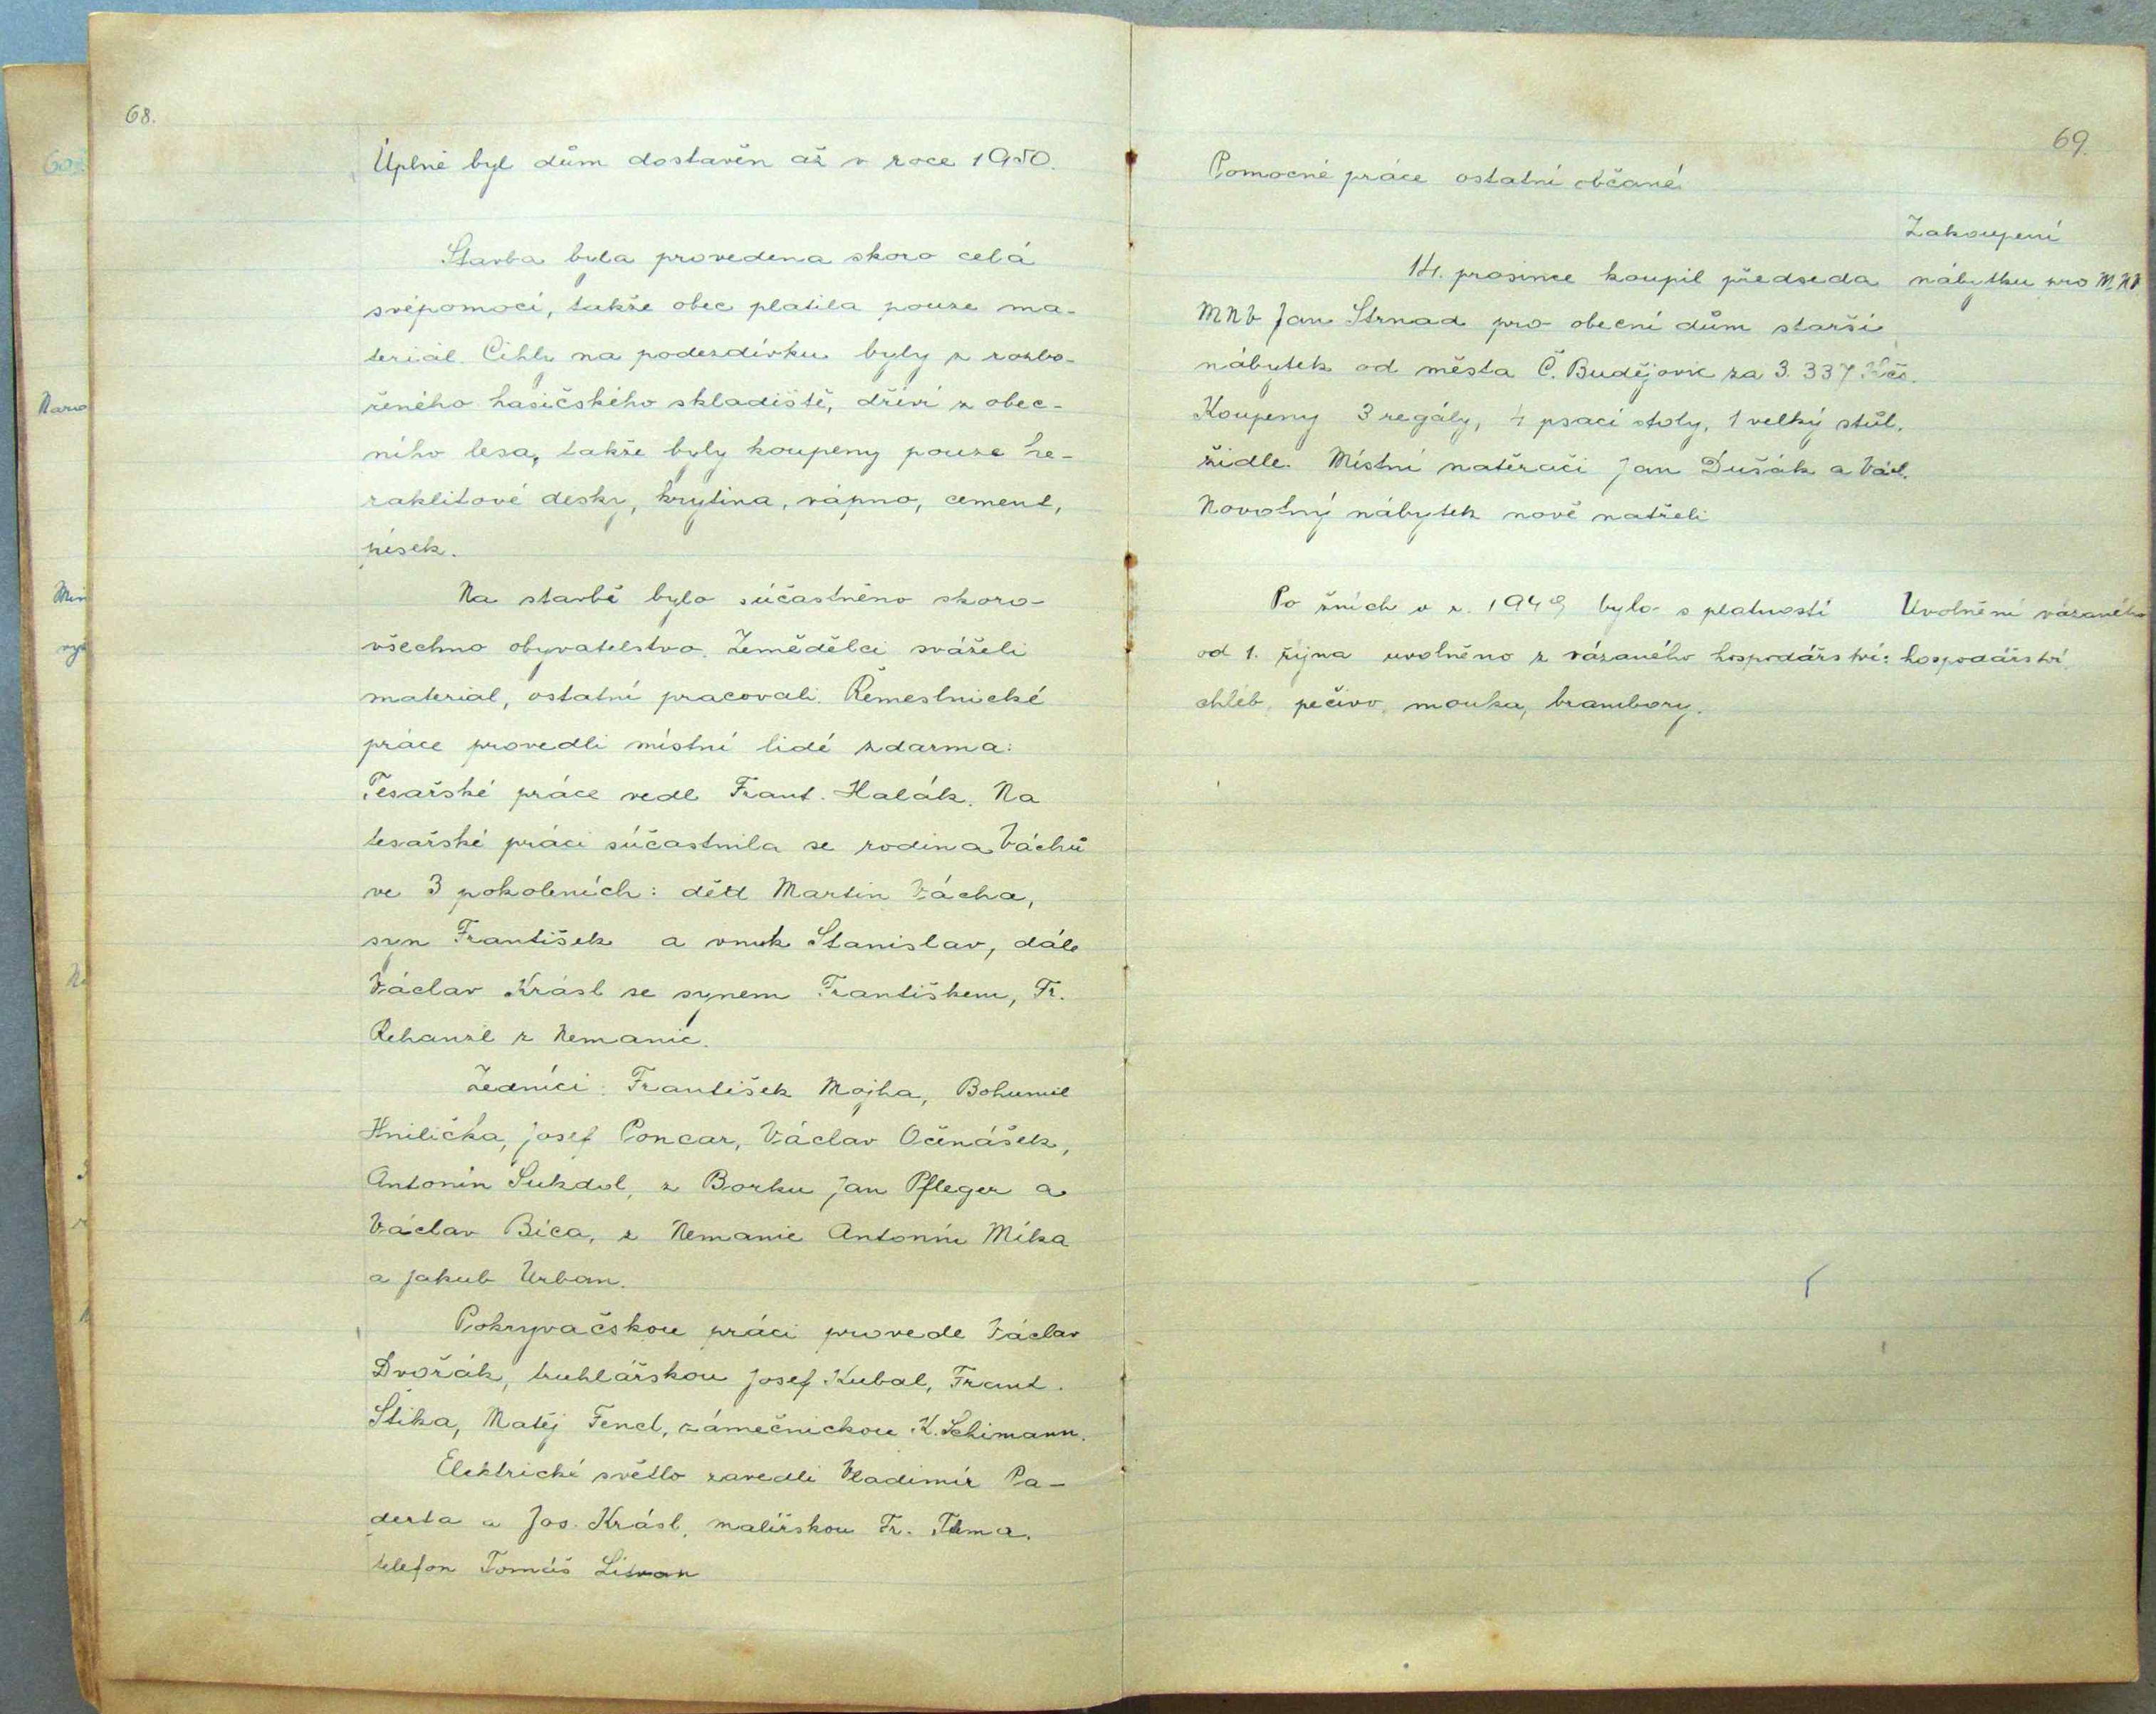 68.
Úplně byl dům dostavěn až v roce 1950.
Stavba byla provedena skoro celá
svépomocí, takže obec platila pouze ma-
teriál. Cihly na podezdívku byly z rozbo-
řeného hasičského skladiště, dříví z obec-
ního lesa, takže byly koupeny pouze he-
raklitové desky, krytina, vápno, cement,
písek.
Na stavbě bylo súčastněno skoro
všechno obyvatelstvo. Zemědělci sváželi
material, ostatní pracovali. Řemeslnické
práce provedli místní lidé zdarma:
Tesařské práce vedl Frant. Halák. Na
tesařské práci súčastnila se rodina Váchů
ve 3 pokoleních: děd Martin Vácha,
syn František a vnuk Stanislav, dále
Václav Krásl se synem Františkem, Fr.
Rehanzl z Nemanic.
Zedníci: František Mojha, Bohumil
Hnilička, Josef Poncar, Václav Očenášek,
Antonín Sukdol, z Borku Jan Pfleger a
Václav Bíca, z Nemanic Antonín Míka
a Jakub Urban.
Pokryvačskou práci provedl Václav
Dvořák, truhlářskou Josef Kubal, Frant.
Štika, Matěj Fencl, zámečnickou K. Schimann.
Elektrické světlo zavedli Vladimír Pa-
derta a Jos. Krásl, malířskou Fr. Tůma.
telefon Tomáš Litvan
69.
Pomocné práce ostatní občané
Zakoupení
nábytku pro MNV
14. prosince koupil předseda
MNV Jan Strnad pro obecní dům starší
nábytek od města Č. Budějovic za 3.337 Kčs.
Koupeny 3 regály, 4 psací stoly, 1 velký stůl,
židle. Místní natěrači Jan Dušák a Václ.
Novotný nábytek nově natřeli
Uvolnění vázaného
hospodářství
Po žních v r. 1949 bylo s platností
od 1. října uvolněno z vázaného hospodářství:
chléb, pečivo, mouka, brambory.